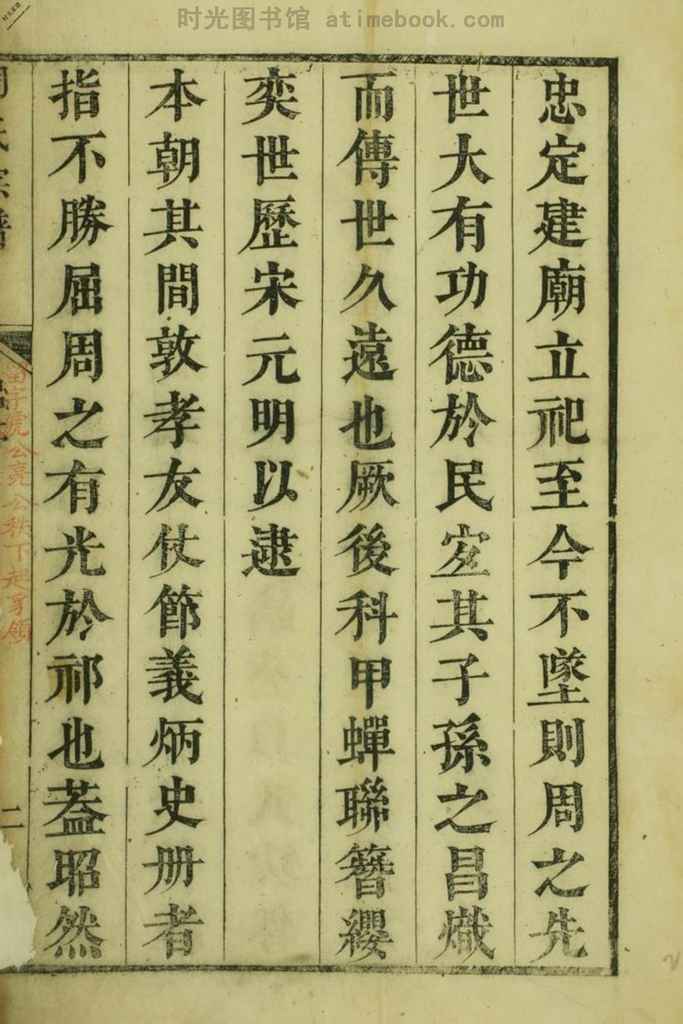 时光图书馆 atimebook.com
忠定建廟立祀至今不墜則周之先
世大有功德於民宐其子孫之昌熾
而傳世久遠也厥後科甲蟬聯簪纓
奕世歷宋元明以逮
本朝其間敦孝友仗節義炳史册者
指不勝屈周之有光於祁也葢昭然
氏宗譜
二